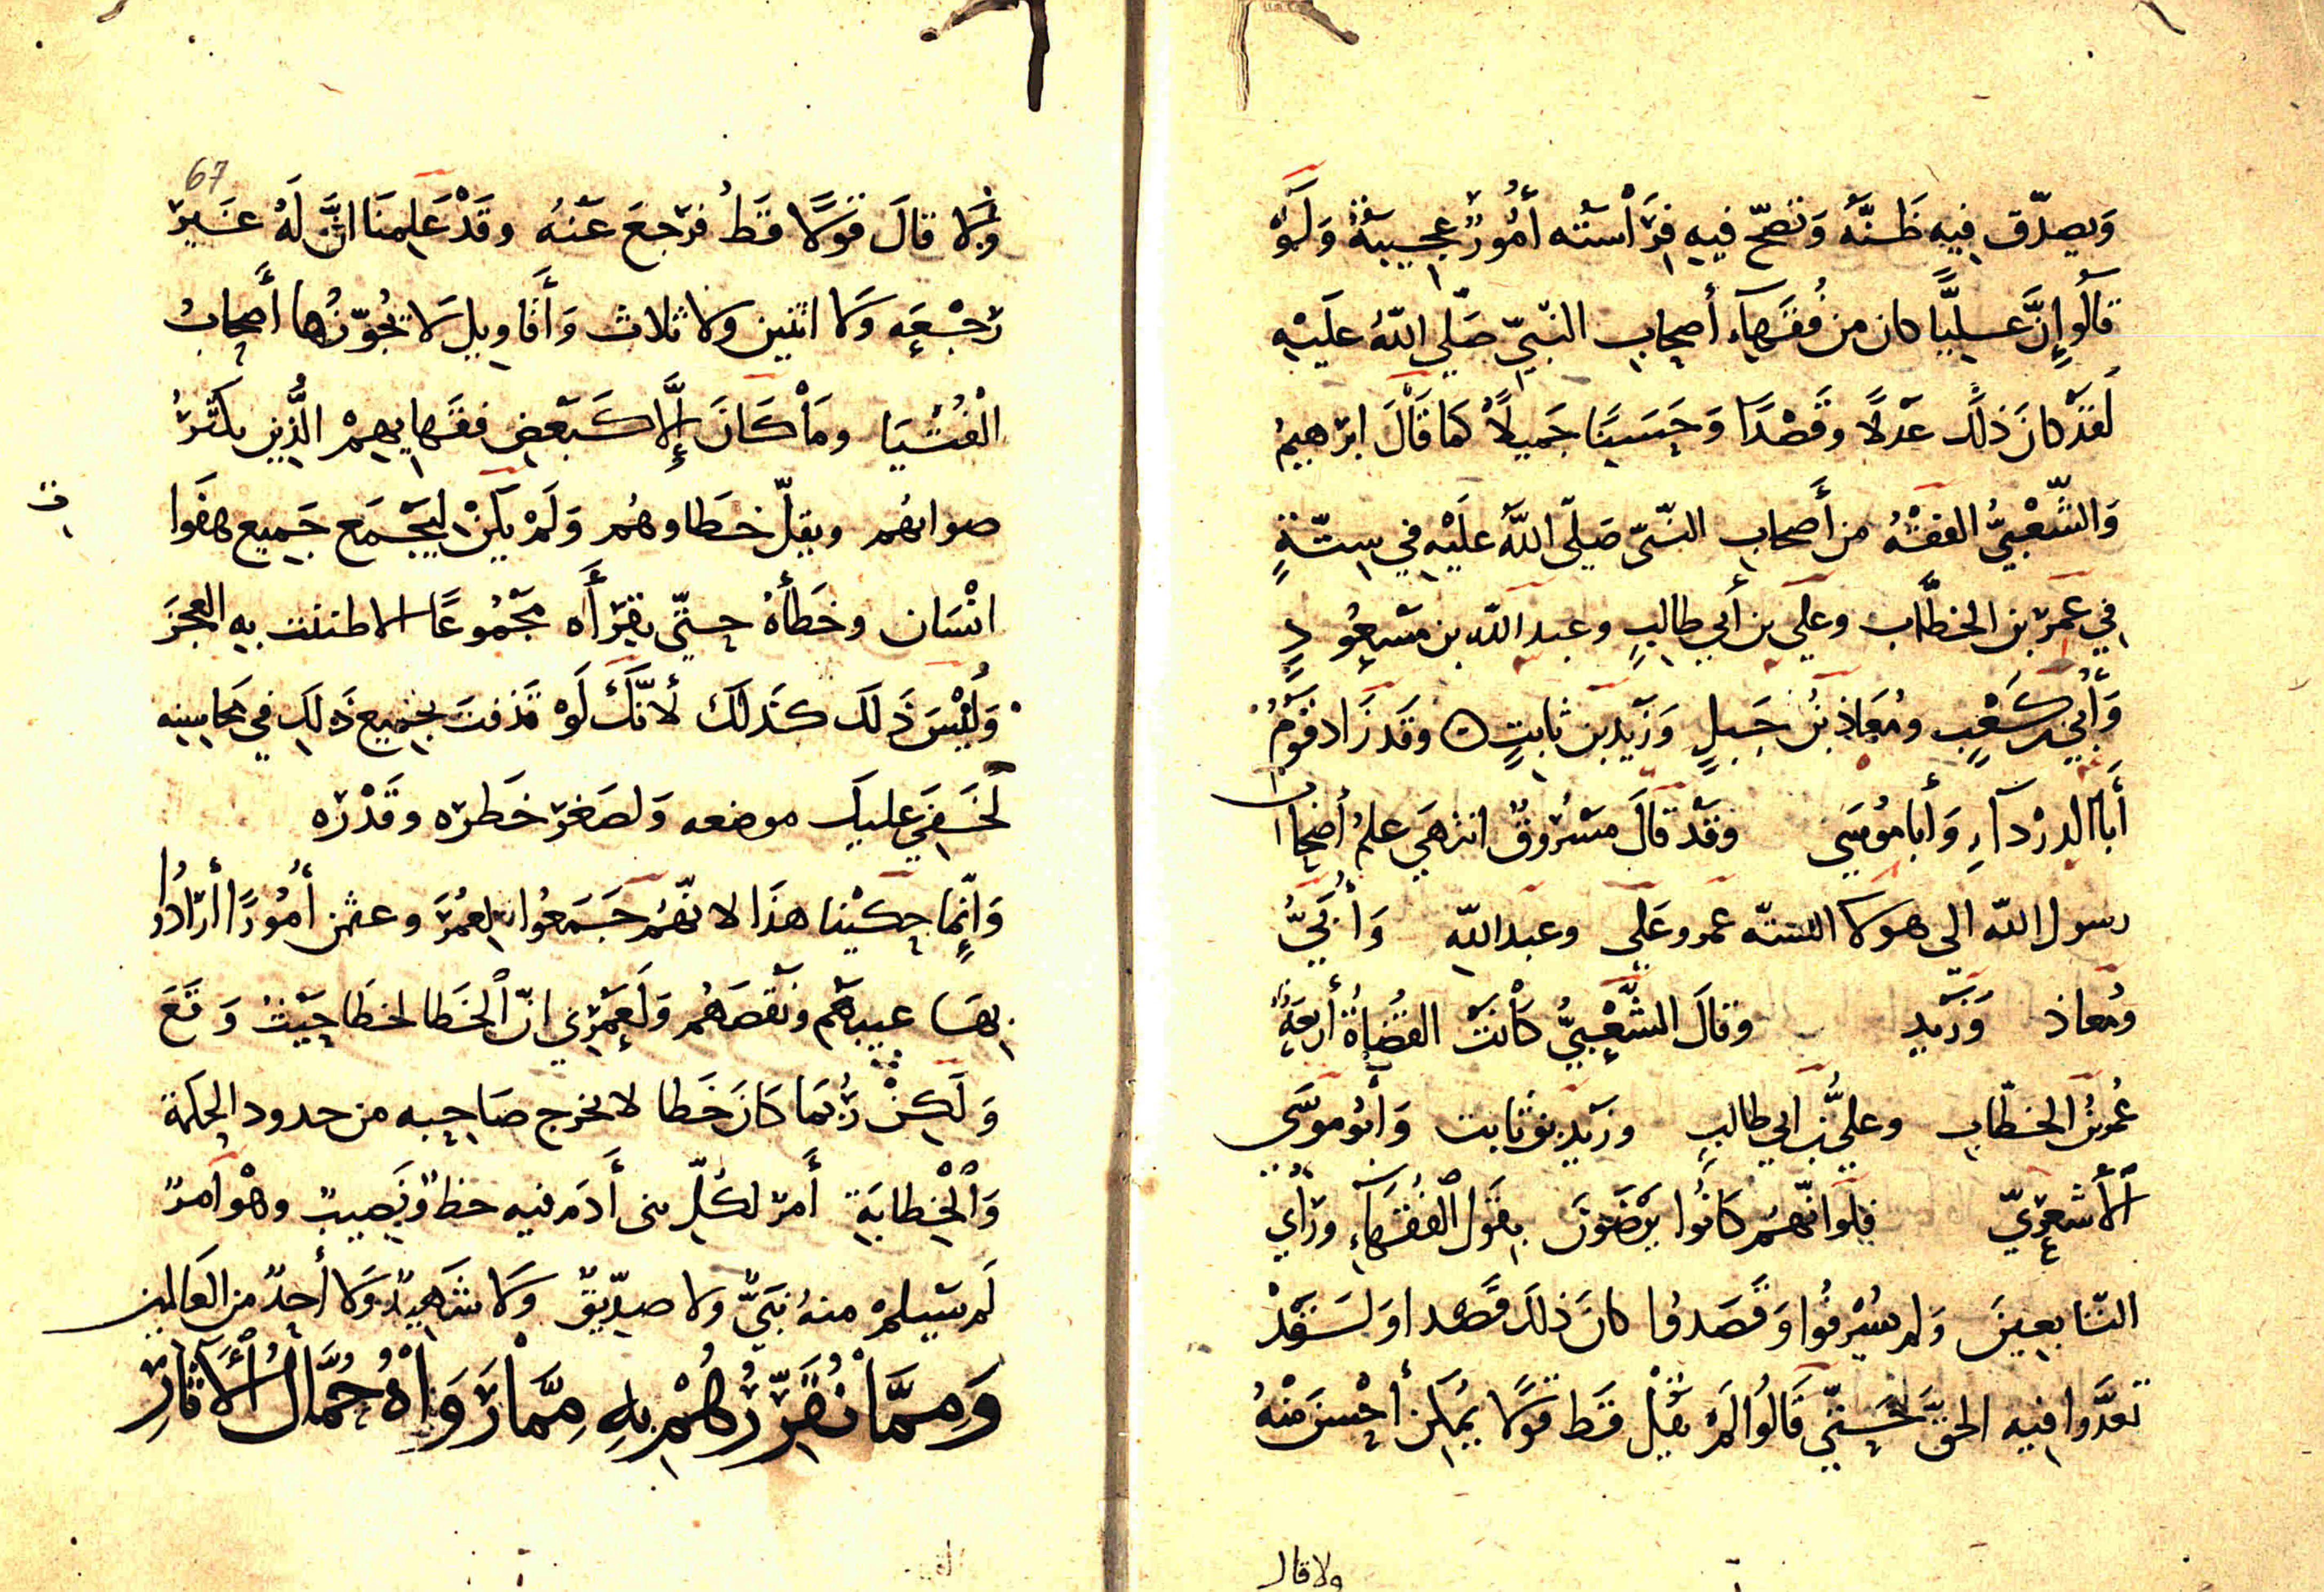 وَيصدّق فيه ظَنَّهُ وَتصحّ فيهِ فِرَاسَته أُمُورٌ عجيبةٌ وَلَوْ
قالُوا إنَّ عَليًّا كان من فُقَهاءِ أصحابِ النّبيّ صَلّى اللّهُ علَيْهِ
لقدْ كانَ ذلك عَدْلًا وقَصْدًا وَحَسَنًا جَميلًا كما قَالَ ابرَهيمُ
وَالشَّعْبيُّ الفقْهُ من أَصحابِ النّبيّ صَلّى اللَّهُ علَيْهِ في ستّةٍ
في عُمَرَ بن الخطَّابِ وعلي بن أبي طالبٍ وعبد اللّه بن مَسْعُودٍ
وَأُبَيّ بن كَعْبٍ ومُعَاذ بْن جَبلٍ وَزَيْد بن ثابتٍ ٥ وقَد زَاد قَوْمٌ
أَبَا الدرْدَآءِ وَأَبا مُوسَى وقَدْ قَالَ مَسْرُوقٌ انتهَى علمُ أصحاب
رسول اللّه الى هولا الستّه عمر وعَلى وعبد اللّه وَأُبَيٍّ
ومُعاذ وَزَيْدٍ وقالَ الشَّعْبيُّ كانَتْ القُضاةُ أَربَعَةً
عُمرُ بْنُ الخطّابِ وعليُّ بن ابي طالبٍ وزَيْد بن ثابت وَأبُو مُوسَى
الأَشْعَرِيّ فلَو انّهُم كَانُوا يَرْضَوْنَ بقَول الفُقَهَاءِ ورَأْي
التّابعينَ وَلم يُسْرفُوا وَقَصَدُوا كانَ ذلكَ قَصْدا وَلَـقَدْ
تعدَّوا فيه الحقّ حَتّى قَالُوا لَمْ يَقُلْ قَط قَولًا يُمكِن أَحْسنَ مِنْهُ
ولا قال
67
وَلا قالَ قوَلًا قَطُ فرَجعَ عَنهُ وقَدْ عَلِمنَا انَّ لَهُ غَيْرَ
رَجْعَه وَلا اثنين ولا ثلاث وَأقَاويل لَا يُجَوّزُها أَصحَابُ
الْفُتْيَا ومَا كَانَ إلَّا كَبَعْضِ فقَهايهِمْ الَّذين يكثرُ
صوابُهُم ويقلّ خطَاوهُم وَلَمْ يكُنْ ليَجْمَع جَميع هفَوا
ت
انْسَان وخَطَأَهُ حتّى يقرَأَه مَجْمُوعًا الا طننت به العجزَ
وَلَيْسَ ذَلَكَ كَذلكَ لأنّكَ لَوْ قذفتَ بجَميع ذَلكَ في محاسِنِه
لخَفيَ عليكَ موضعه وَلصَغرَ خَطره وقَدْرُه
وَإنّما حكَيْنا هذَا لانّهُم جَمَعُوا لِعُمَرَ وعثمن أُمُورًا أرَادُوا
بهَا عيبهُم ونَقصَهُم وَلَعَمْرِي انّ الْخَطا لخطَا حَيْثُ وَقَعَ
وَلَكِنْ رُبَّمَا كَانَ خَطا لا يخرج صَاحِبه من حدود الحِكمَة
وَالْخِطَابَة أَمرٌ لكُلّ بنى أَدَم فيه حظٌ وَنَصِيبٌ وهُوَ امرٌ
لَم يَسْلمْ منهُ نَبيٌّ ولا صدّيقٌ وَلا شَهيدٌ وَلا أحِدٌ من العَالمين
وَمِمَّا نُقَرِّرُهُمْ بِهِ مِمَّا رَوَاهُ حُمَّالُ الْآثَارِ